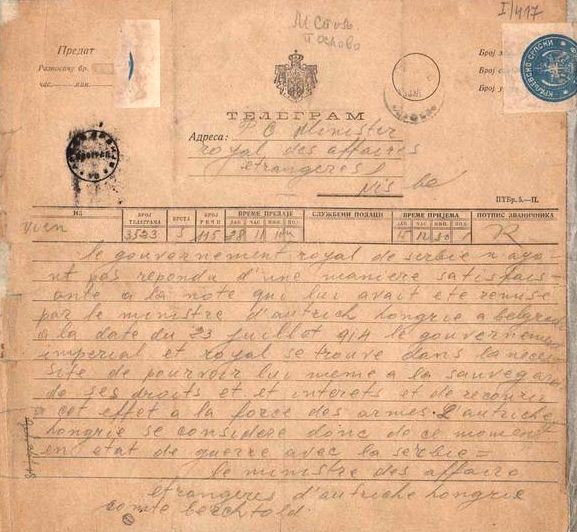 I/417
М Столь
Предат
Разносачу бр.
час. мин.
Број
Број
Број
КРАЉЕВСКО-СРПСКИ
ТЕЛЕГРАМ
Адреса: Minister
royal des affaires
etrangeres
Nis
ПТБр. 5.—II.
ИЗ БРОЈ ТЕЛЕГРАМА ВРСТА БРОЈ РЕЧИ ВРЕМЕ ПРЕДАЈЕ СЛУЖБЕНИ ПОДАЦИ ВРЕМЕ ПРИЈЕМА ПОТПИС ЗВАНИЧНИКА
ДАН ЧАС МИН. ДАН ЧАС МИН.
Vien 3523 5 115 28 11 10 12 30 R
le gouvernement royal de serbie n aya
nt pas repondu d'une maniere satisfais-
ante a la note qui lui avait ete remise
par le ministre d'autrich hongrie a belgrad
a la date du 23 juillot 914 le gouvernemen
imperial et royal se trouve dans la neces
site de pourvoir lui meme a la sauvegar
de ses droits et et interets et de recourir
a cet effet a la force des armes. L autriche
hongrie se considere donc de ce moment
en etat de guerre avec la serbie =
le ministre des affaire
etrangeres d'autriche hongrie
comte berchtold.